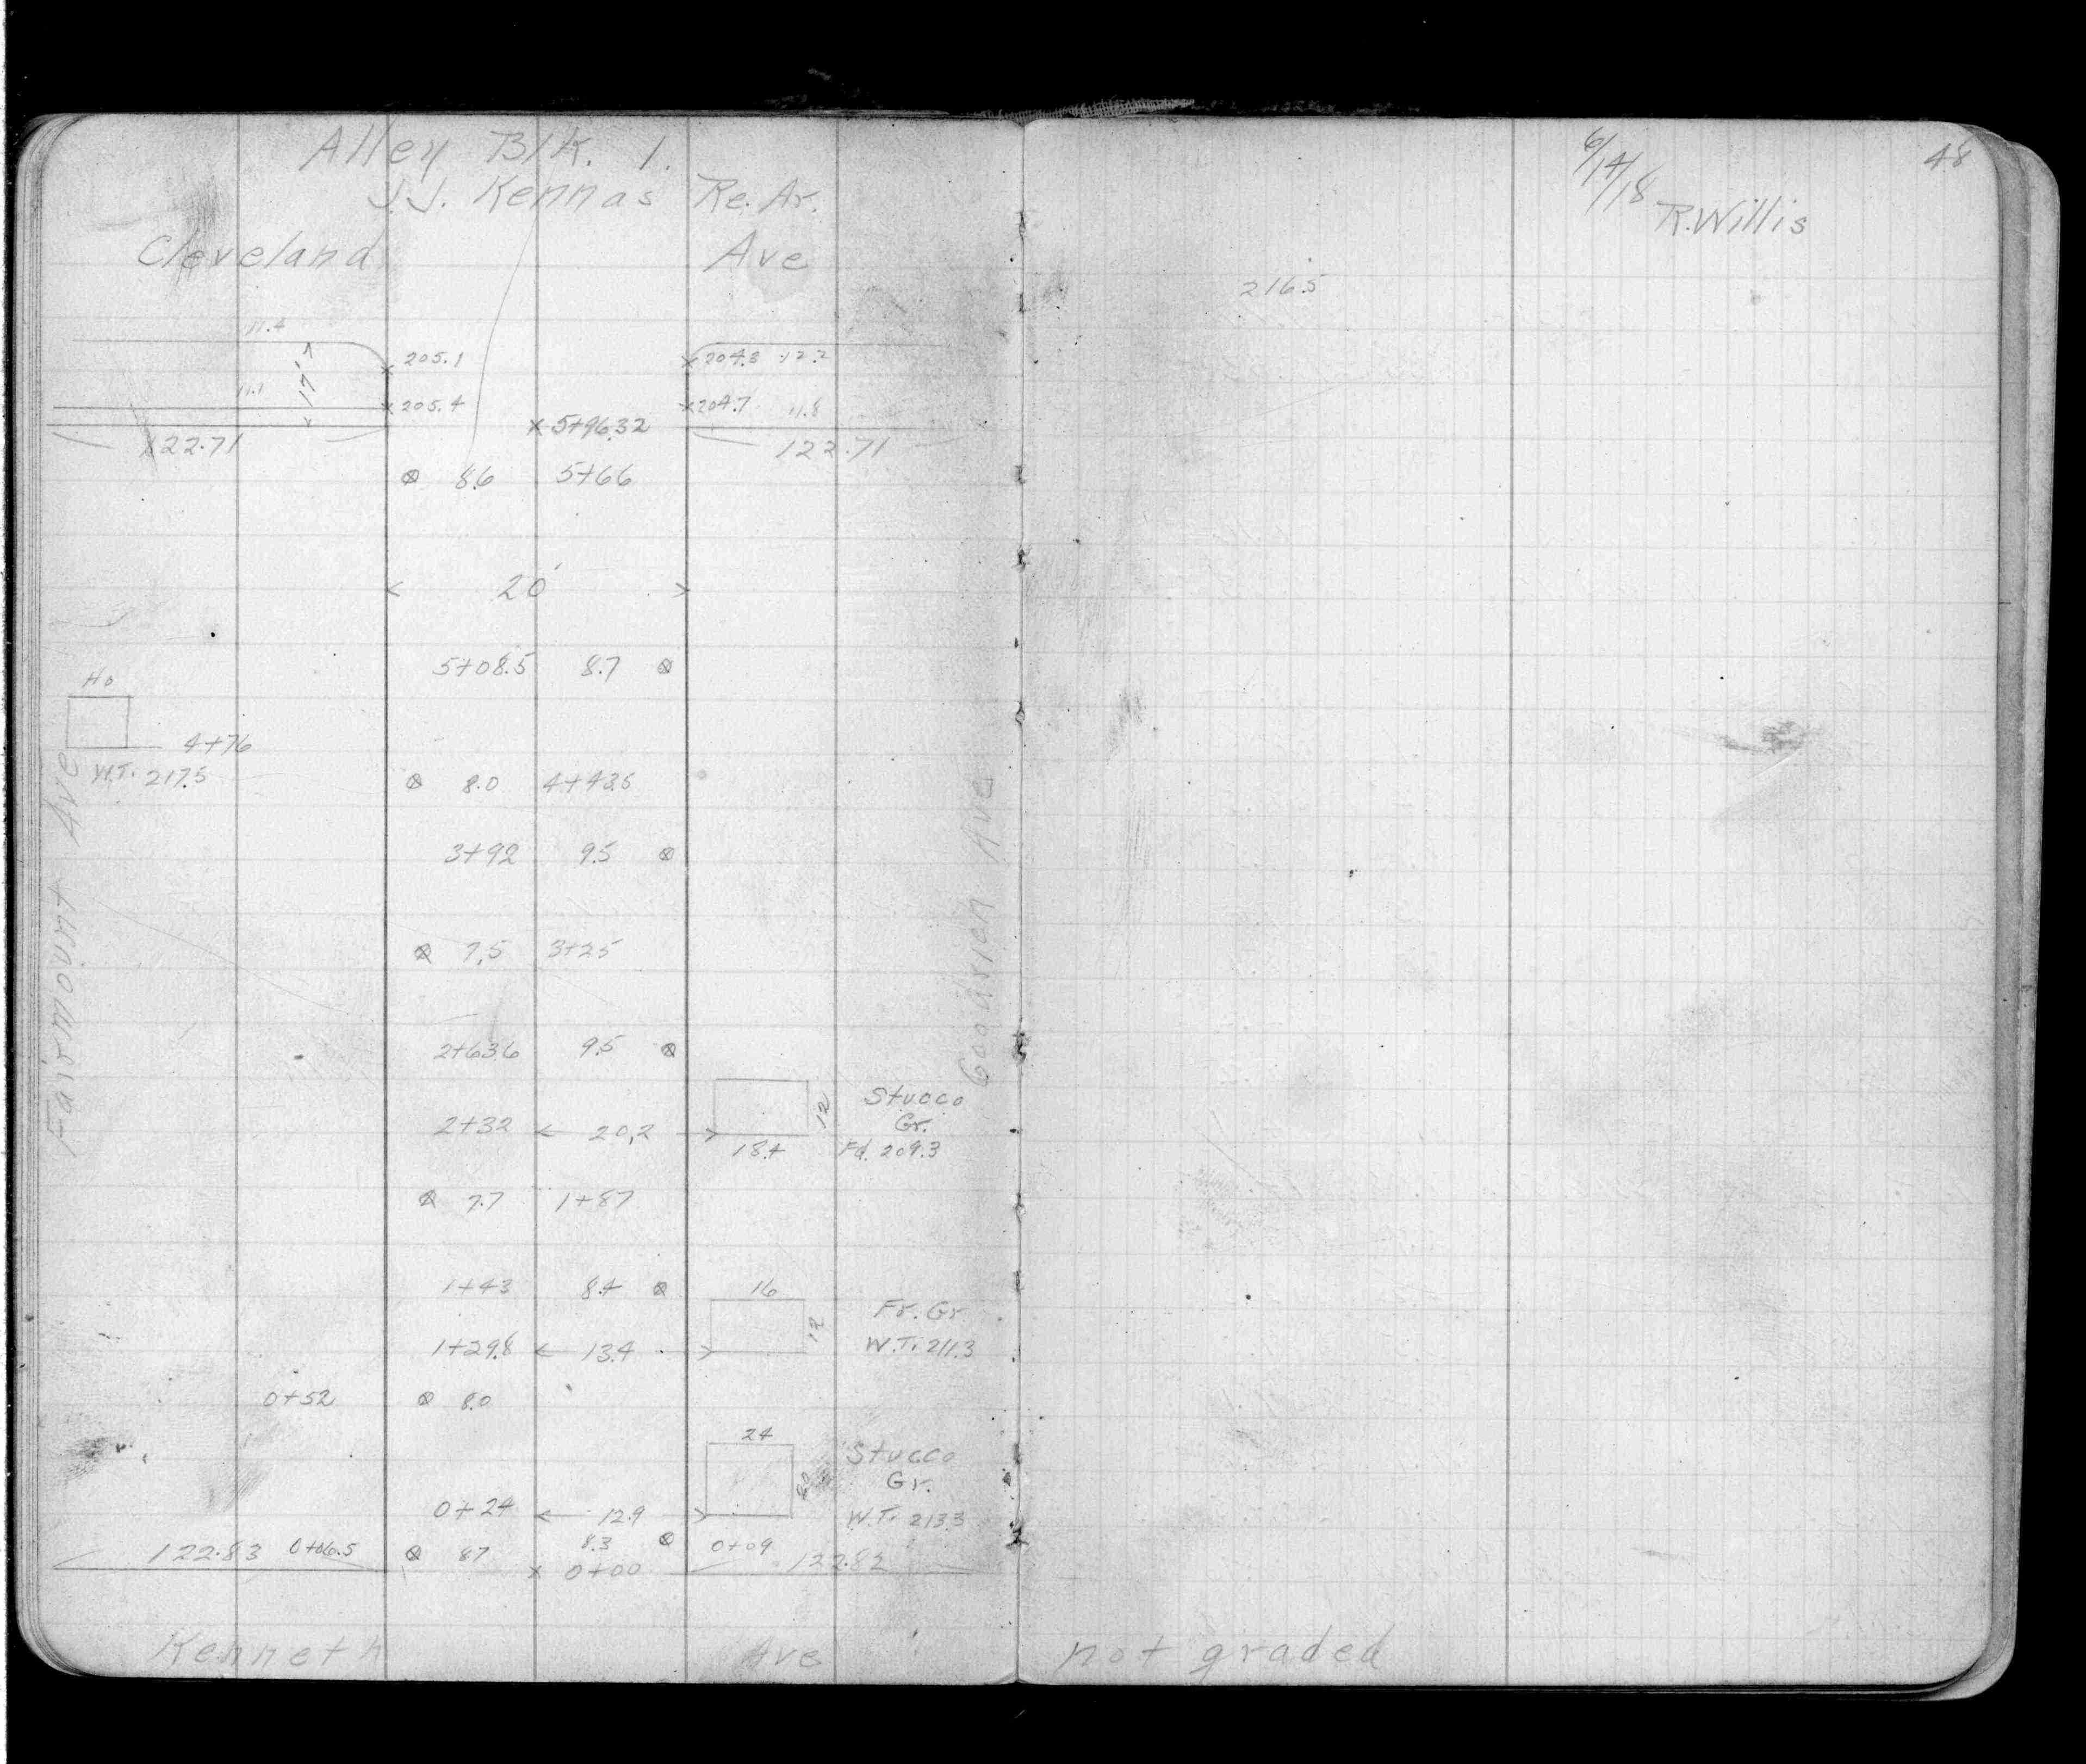 Alley Blk. 1.
J.J. Kennas Re. Ar.
Cleveland Ave
11.4
205.1 204.3 12.2
17'
11.1
205.4 204.7 11.8
5+96.32
122.71 122.71
8.6 5+66
20'
5+08.5 8.7
Ho
4+76
W.T. 217.5
8.0 4+43.5
Fairmount Ave
Goodrich Ave
3+92 9.5
7.5 3+25
2+63.6 9.5
Stucco
12
Gr.
2+32 20.2
18.4 Fd. 209.3
7.7 1+87
1+43 8.4 16
Fr. Gr
12
1+29.8 13.4 W.T. 211.3
0+52 8.0
24
Stucco
20
Gr.
0+24 12.9 W.T. 213.3
8.3 0+09
122.83 0+06.5 8.7 122.82
0+00
Kenneth Ave
6/14/18
48
R. Willis
216.5
not graded